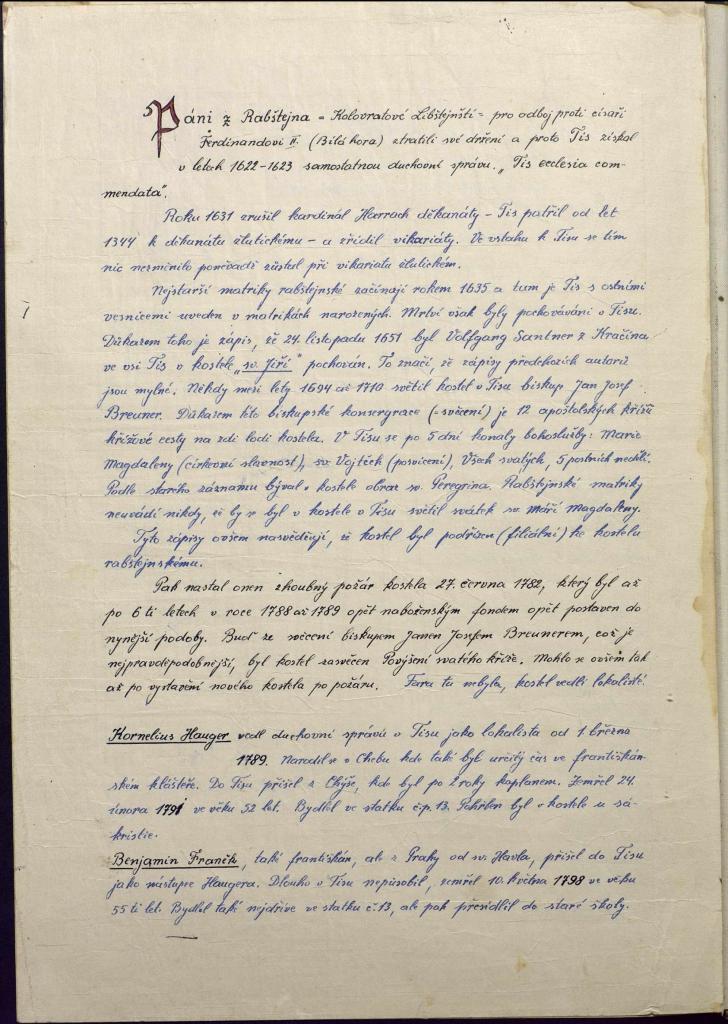 Páni z Rabštejna - Kolovratové Libštejnští - pro odboj proti císaři
Ferdinandovi II. (Bílá hora) ztratili své držení a proto Tis získal
v letech 1622-1623 samostatnou duchovní správu. „Tis ecclesia com-
mendata".
Roku 1631 zrušil kardinál Harrach děkanáty - Tis patřil od let
1344 k děkanátu žlutickému - a zřídil vikariáty. Ve vztahu k Tisu se tím
nic nezměnilo poněvadž zůstal při vikariatu žlutickém.
Nejstarší matriky rabštejnské začínají rokem 1635 a tam je Tis s ostními
vesnicemi uveden v matrikách narozených. Mrtví však byly pochovávání v Tisu.
Důkazem toho je zápis, že 24. listopadu 1651 byl Volfgang Santner z Kračína
ve vsi Tis v kostele „sv. Jiří" pochován. To značí, že zápisy předchozích autorů
jsou mylné. Někdy mezi lety 1694 až 1710 světil kostel v Tisu biskup Jan Josef
Breuner. Důkazem této biskupské konsergrace (=svěcení) je 12 apoštolských křížů
křížové cesty na zdi lodi kostela. V Tisu se po 5 dní konaly bohoslužby: Marie
Magdaleny (církevní slavnost), sv. Vojtěch (posvícení), Všech svatých, 5 postních nedělí.
Podle starého záznamu býval v kostele obraz sv. Peregrina. Rabštejnské matriky
neuvádí nikdy, že by se byl v kostele v Tisu světil svátek sv. máří Magdaleny.
Tyto zápisy ovšem nasvědčují, že kostel byl podřízen (filiální) ke kostelu
rabštejnskému.
Pak nastal onen zhoubný požár kostela 27. června 1782, který byl až
po 6 ti letech v roce 1788 až 1789 opět naboženským fondem opět postaven do
nynější podoby. Buď ze svěcení biskupem Janem Josefem Breunerem, což je
nejpravděpodobnější, byl kostel zasvěcen Povýšení svatého kříže. Mohlo se ovšem tak
až po vystavění nového kostela po požáru. Fara tu nebyla, kostel vedli lokalisté.
Kornelius Hauger vedl duchovní správu v Tisu jako lokalista od 1. března
1789. Narodil se v Chebu kde také byl určitý čas ve františkán-
ském klášteře. Do Tisu přišel z Chýše, kde byl po 2 roky kaplanem. Zemřel 24.
února 1791 ve věku 52 let. Bydlel ve statku čp. 13. Pohřben byl v kostele u sa-
kristie.
Benjamin Franěk, také františkán, ale z Prahy od sv. Havla, přišel do Tisu
jako nástupce Haugera. Dlouho v Tisu nepůsobil, zemřel 10. května 1798 ve věku
55 ti let. Bydlel také nejdříve ve statku č. 13, ale pak přesídlil do staré školy.